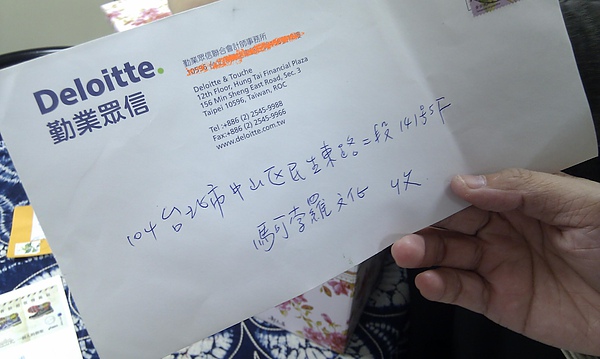 Deloitte.
勤業眾信
勤業眾信聯合會計師事務所
10596 台
Deloitte & Touche
12th Floor, Hung Tai Financial Plaza
156 Min Sheng East Road, Sec. 3
Taipei 10596, Taiwan, ROC
Tel :+886 (2) 2545-9988
Fax:+886 (2) 2545-9966
www.deloitte.com.tw
104 台北市中山区民生東路二段141号5F
馬可孛羅文化